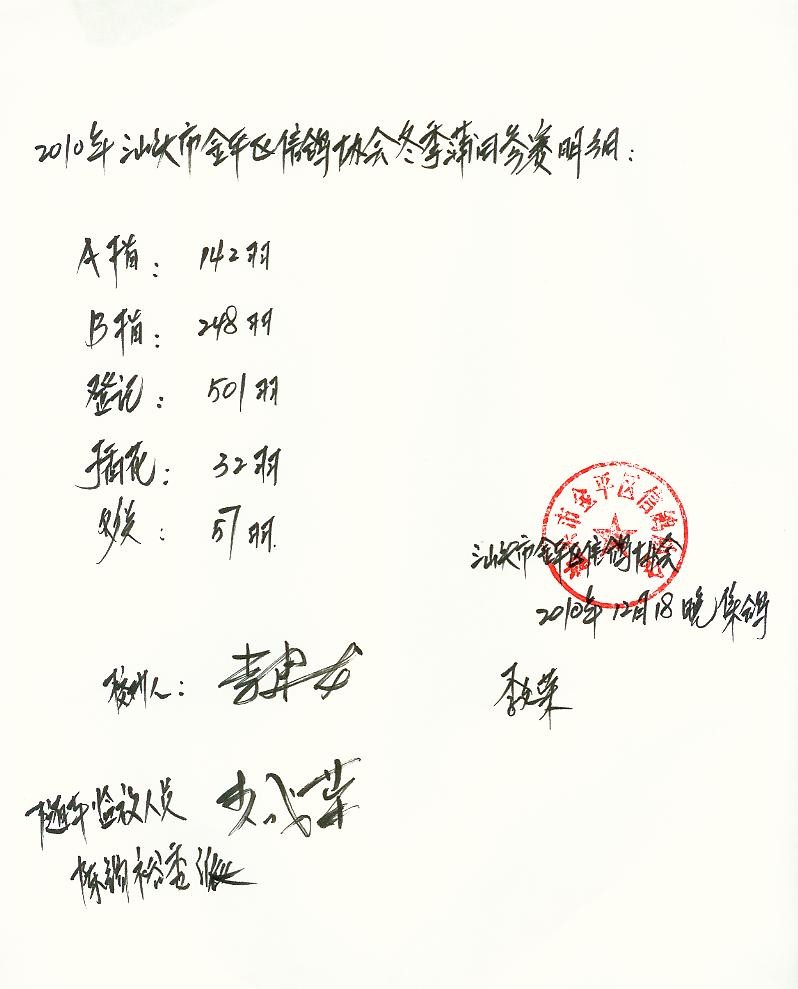 2010年汕头市金平区信鸽协会冬季蒲田参赛明细:
A指: 142羽
B指: 248羽
登记: 501羽
插花: 32羽
57羽.
汕头市金平区信鸽协会
汕头市金平区信鸽协会
2010年12月18晚集鸽
李文荣
人:
随车监放人员
陈